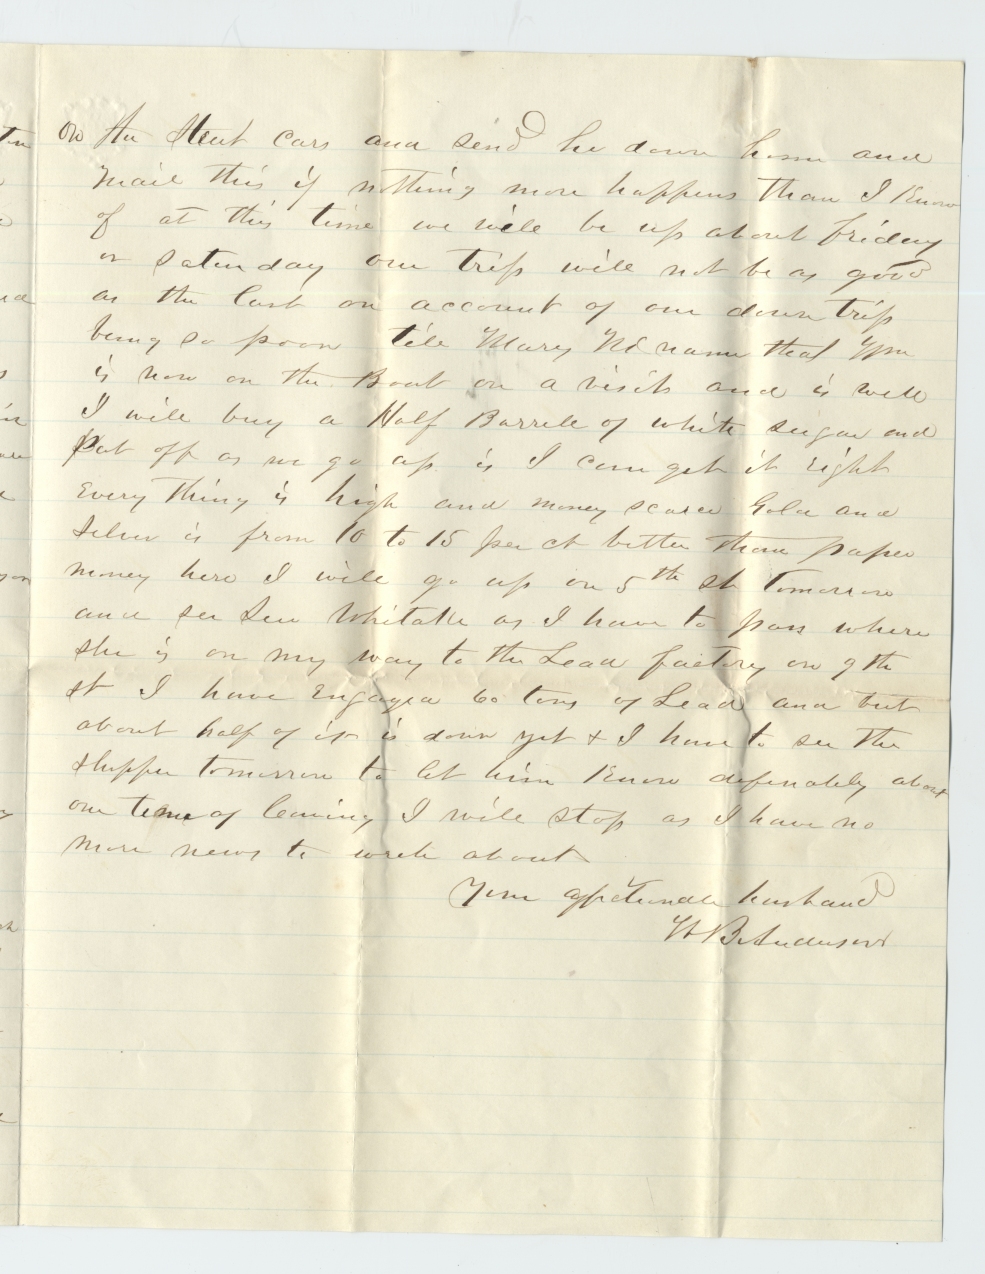 on the Street cars and send he down home and
mail this if nothing more happens than I Know
of at this time we will be up about friday
or Saturday our trip will not be as good
as the last on account of our down trip
being so poor tell Mary McName that Wm
is now on the Boat on a visit and is well
I will buy a Half Barrele of white sugar and
Put off as we go up is I can get it right
Every thing is high and money scarce Gold and
Silver is from 10 to 15 per ct better than paper
money here I will go up on 5th St tomorrow
and see Whitake as I have to pass where
She is on my way to the Lead factory on 9th
st I have Engaged 60 tons of Lead and but
about half of it is down yet & I have to see the
Shipper tomorrow to let him Know definately about
our time of leaving I will stop as I have no
more news to write about
Your affectionate husband
B Anderson